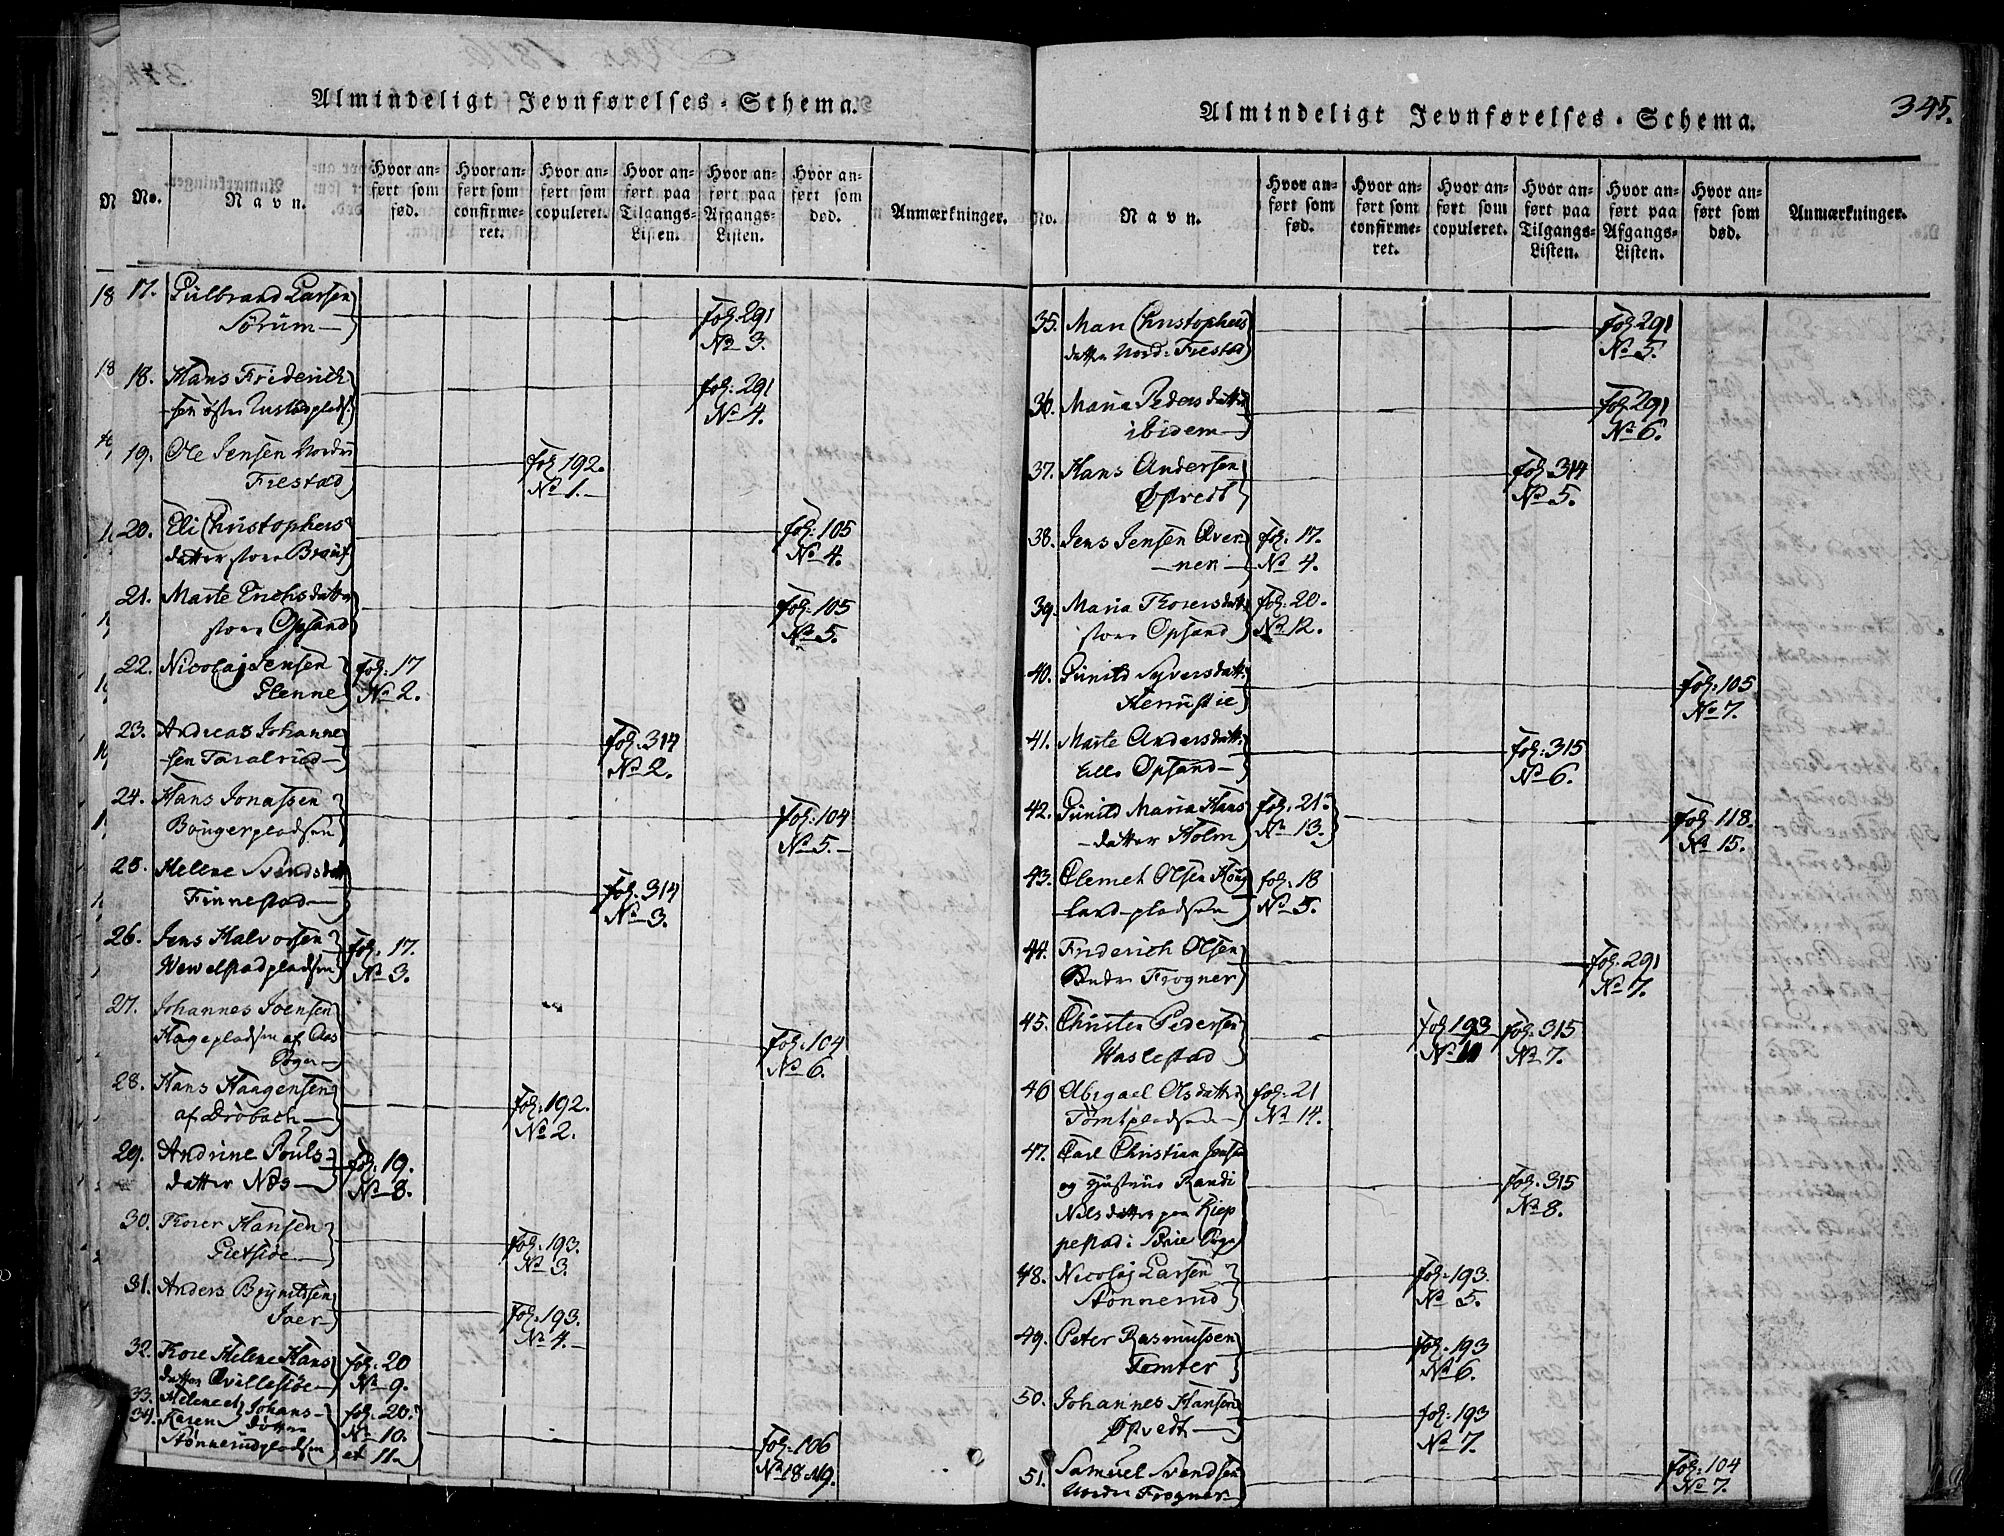 Almindeligt Jevnførelses-Schema.
No.
Navn.
Hvor anført som fød.
Hvor anført som confirmeret.
Hvor anført som copuleret.
Hvor anført paa Tilgangs-Listen.
Hvor anført paa Afgangs-Listen.
Hvor anført som død.
Anmærkninger.
17. Gulbrand Larsen
Sørum — fol. 291
No 3.
18. Hans Friderich
sen øster fol: 291
No 4.
19. Ole Jensen Nordre
Frestad fol 192.
No 1.
20. Eli Christophers
datter store fol: 105
No 4.
21. Marte Erichsdatter
store Opsand fol: 105
No 5.
22. Nicolaj Jensen fol: 17
Glenne No 2.
23. Andreas Johanne
sen Taralrud fol: 314
No 2.
24. Hans Jonassen
pladsen fol: 104
No 5.
25. Helene Svendsdatt
Finnestad fol: 314
No 3.
26. Jens Halvorsen fol. 17.
Wewelstadpladsen No 3.
27. Johannes Joensen
Hagepladsen af Aas
Sogn fol: 104
No 6.
28. Hans Haagensen
af Drøbach fol: 192.
No 2.
29. Andrine Pouls- fol. 19.
datter Næs No 8.
30. Torer Hansen
fol: 193.
No 3.
31. Anders Brynildsen
Joer fol. 193.
No 4.
32. Helene Hans fol: 20
datter No 9.
33. Helene et
34. Karen Johans- fol: 20.
døttre No 10.
Stønnerudpladsen et 11.
fol: 106
No 18 19.
Almindeligt Jevnførelses-Schema.
345.
No.
Navn.
Hvor anført som fød.
Hvor anført som confirmeret.
Hvor anført som copuleret.
Hvor anført paa Tilgangs-Listen.
Hvor anført paa Afgangs-Listen.
Hvor anført som død.
Anmærkninger.
35. Mari Christophers fol 291
datter Nord: Frestad No 5.
36. Maria Pedersdatter fol: 291
ibidem No 6.
37. Hans Andersen fol. 314
Øfvedt No 5.
38. Jens Jensen Qver fol: 17.
neri No 4.
39. Maria Thorersdatt fol: 20.
store Opsand No 12.
40. Gunild Syversdatt:
fol: 105
No 7.
41. Marte Andersdatt: fol: 315
Lille Opsand No 6.
42. Gunild Maria Hans fol. 21. fol 118.
datter Holm No 13. No 15.
43. Clemet Olsen Houg fol: 18
land-pladsen No 5.
44. Friderich Olsen fol. 291
Søndre Frogner No 7.
45. Christen Pedersen fol 193 fol: 315
Waslestad No 7.
46 Abigael Olsdatter fol: 21
Tomtpladsen No 14.
47. Carl Christian Jensen
og Hustrue Randi fol: 315
Nilsdatter paa Kiep No 8.
pestad i Sogn
48. Nicolaj Larsen fol: 193.
Stønnerud No 5.
49. Peter Rasmussen fol: 193
Tomter No 6.
50. Johannes Hansen fol: 193
Øfvedt No 7.
51. Samuel Svendsen fol: 104
Nordre Frogner No 7.